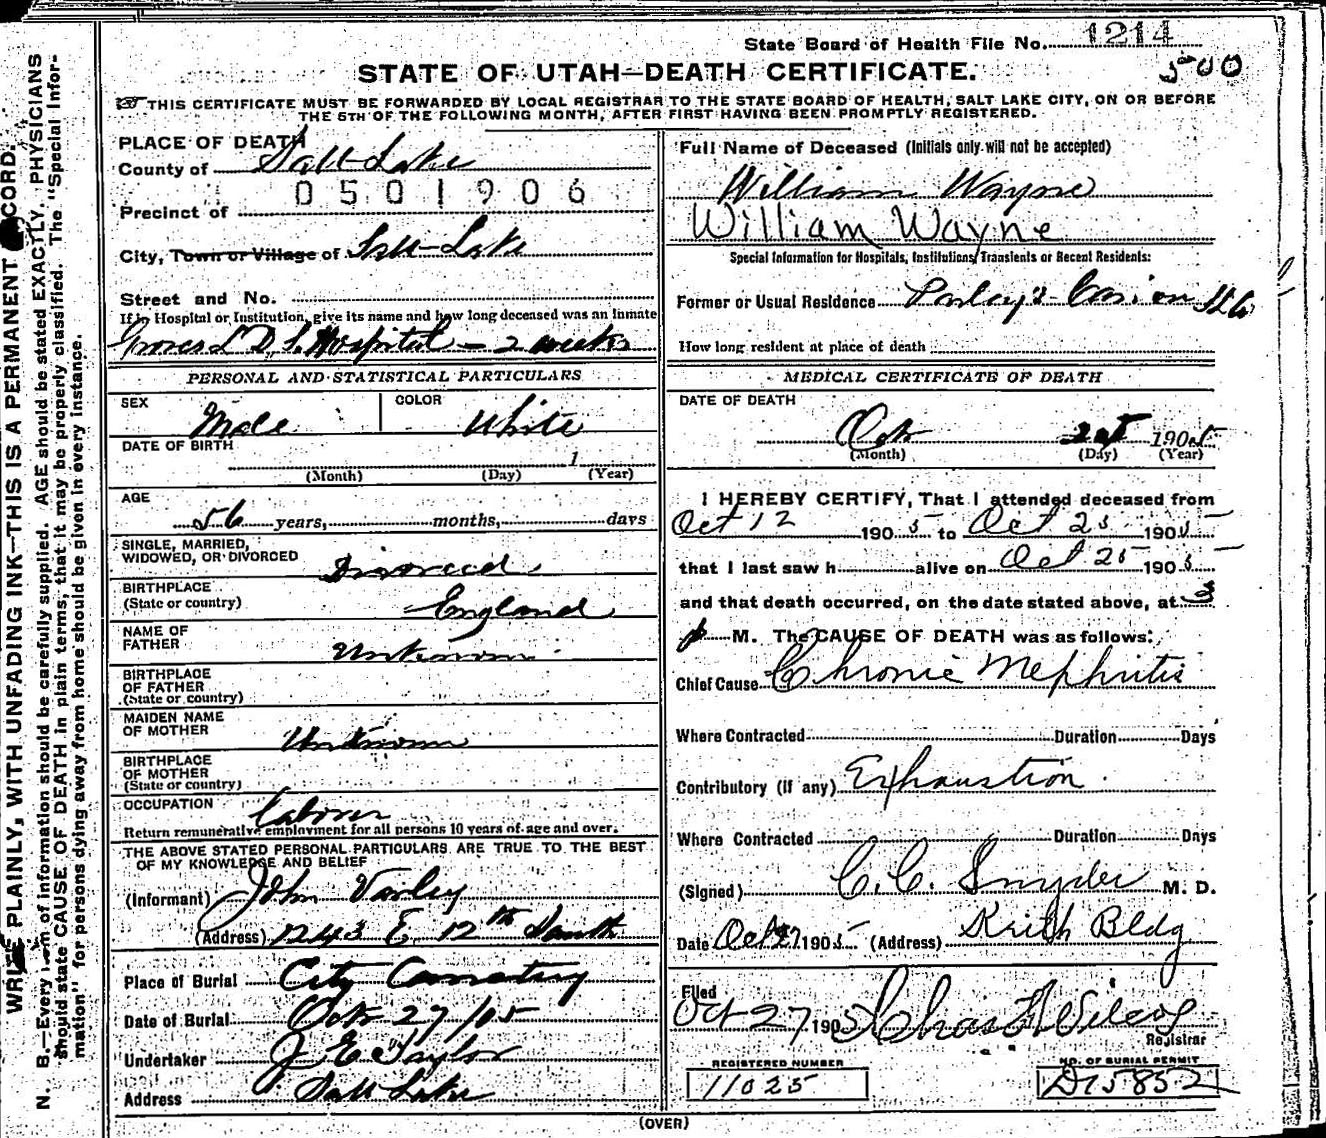 State Board of Health File No. 1214
500
STATE OF UTAH—DEATH CERTIFICATE.
THIS CERTIFICATE MUST BE FORWARDED BY LOCAL REGISTRAR TO THE STATE BOARD OF HEALTH, SALT LAKE CITY, ON OR BEFORE
THE 5TH OF THE FOLLOWING MONTH, AFTER FIRST HAVING BEEN PROMPTLY REGISTERED.
WRITE PLAINLY, WITH UNFADING INK—THIS IS A PERMANENT RECORD.
N. B.—Every item of information should be carefully supplied. AGE should be stated EXACTLY. PHYSICIANS
should state CAUSE OF DEATH in plain terms, that it may be properly classified. The "Special Infor-
mation" for persons dying away from home should be given in every instance.
PLACE OF DEATH
County of Salt Lake
0501906
Precinct of
City, Town or Village of Salt Lake
Street and No.
If in Hospital or Institution, give its name and how long deceased was an inmate
Groves L D S Hospital — 2 weeks
PERSONAL AND STATISTICAL PARTICULARS
SEX Male COLOR White
DATE OF BIRTH
1
(Month) (Day) (Year)
AGE
56 years, months, days
SINGLE, MARRIED,
WIDOWED, OR DIVORCED Divorced
BIRTHPLACE
(State or country) England
NAME OF
FATHER Unknown
BIRTHPLACE
OF FATHER
(State or country)
MAIDEN NAME
OF MOTHER Unknown
BIRTHPLACE
OF MOTHER
(State or country)
OCCUPATION Laborer
Return remunerative employment for all persons 10 years of age and over.
THE ABOVE STATED PERSONAL PARTICULARS ARE TRUE TO THE BEST
OF MY KNOWLEDGE AND BELIEF
(Informant) John Varley
(Address) 1243 E 12th South
Place of Burial City Cemetery
Date of Burial Oct 27/05
Undertaker J E Taylor
Address Salt Lake
Full Name of Deceased (Initials only will not be accepted)
William Wayne
William Wayne
Special Information for Hospitals, Institutions, Transients or Recent Residents:
Former or Usual Residence Parley's
How long resident at place of death
MEDICAL CERTIFICATE OF DEATH
DATE OF DEATH
Oct 25 1905
(Month) (Day) (Year)
I HEREBY CERTIFY, That I attended deceased from
Oct 12 1905 to Oct 25 1905
that I last saw h alive on Oct 25 1905
and that death occurred, on the date stated above, at 3
p M. The CAUSE OF DEATH was as follows:
Chief Cause Chronic Nephritis
Where Contracted Duration Days
Contributory (if any) Exhaustion.
Where Contracted Duration Days
(Signed) C. C. Snyder M. D.
Date Oct 27 1905 (Address) Keith Bldg
Filed
Oct 27 1905 Chas F Wilcox
Registrar
REGISTERED NUMBER
11025
NO. OF BURIAL PERMIT
D15852
(OVER)